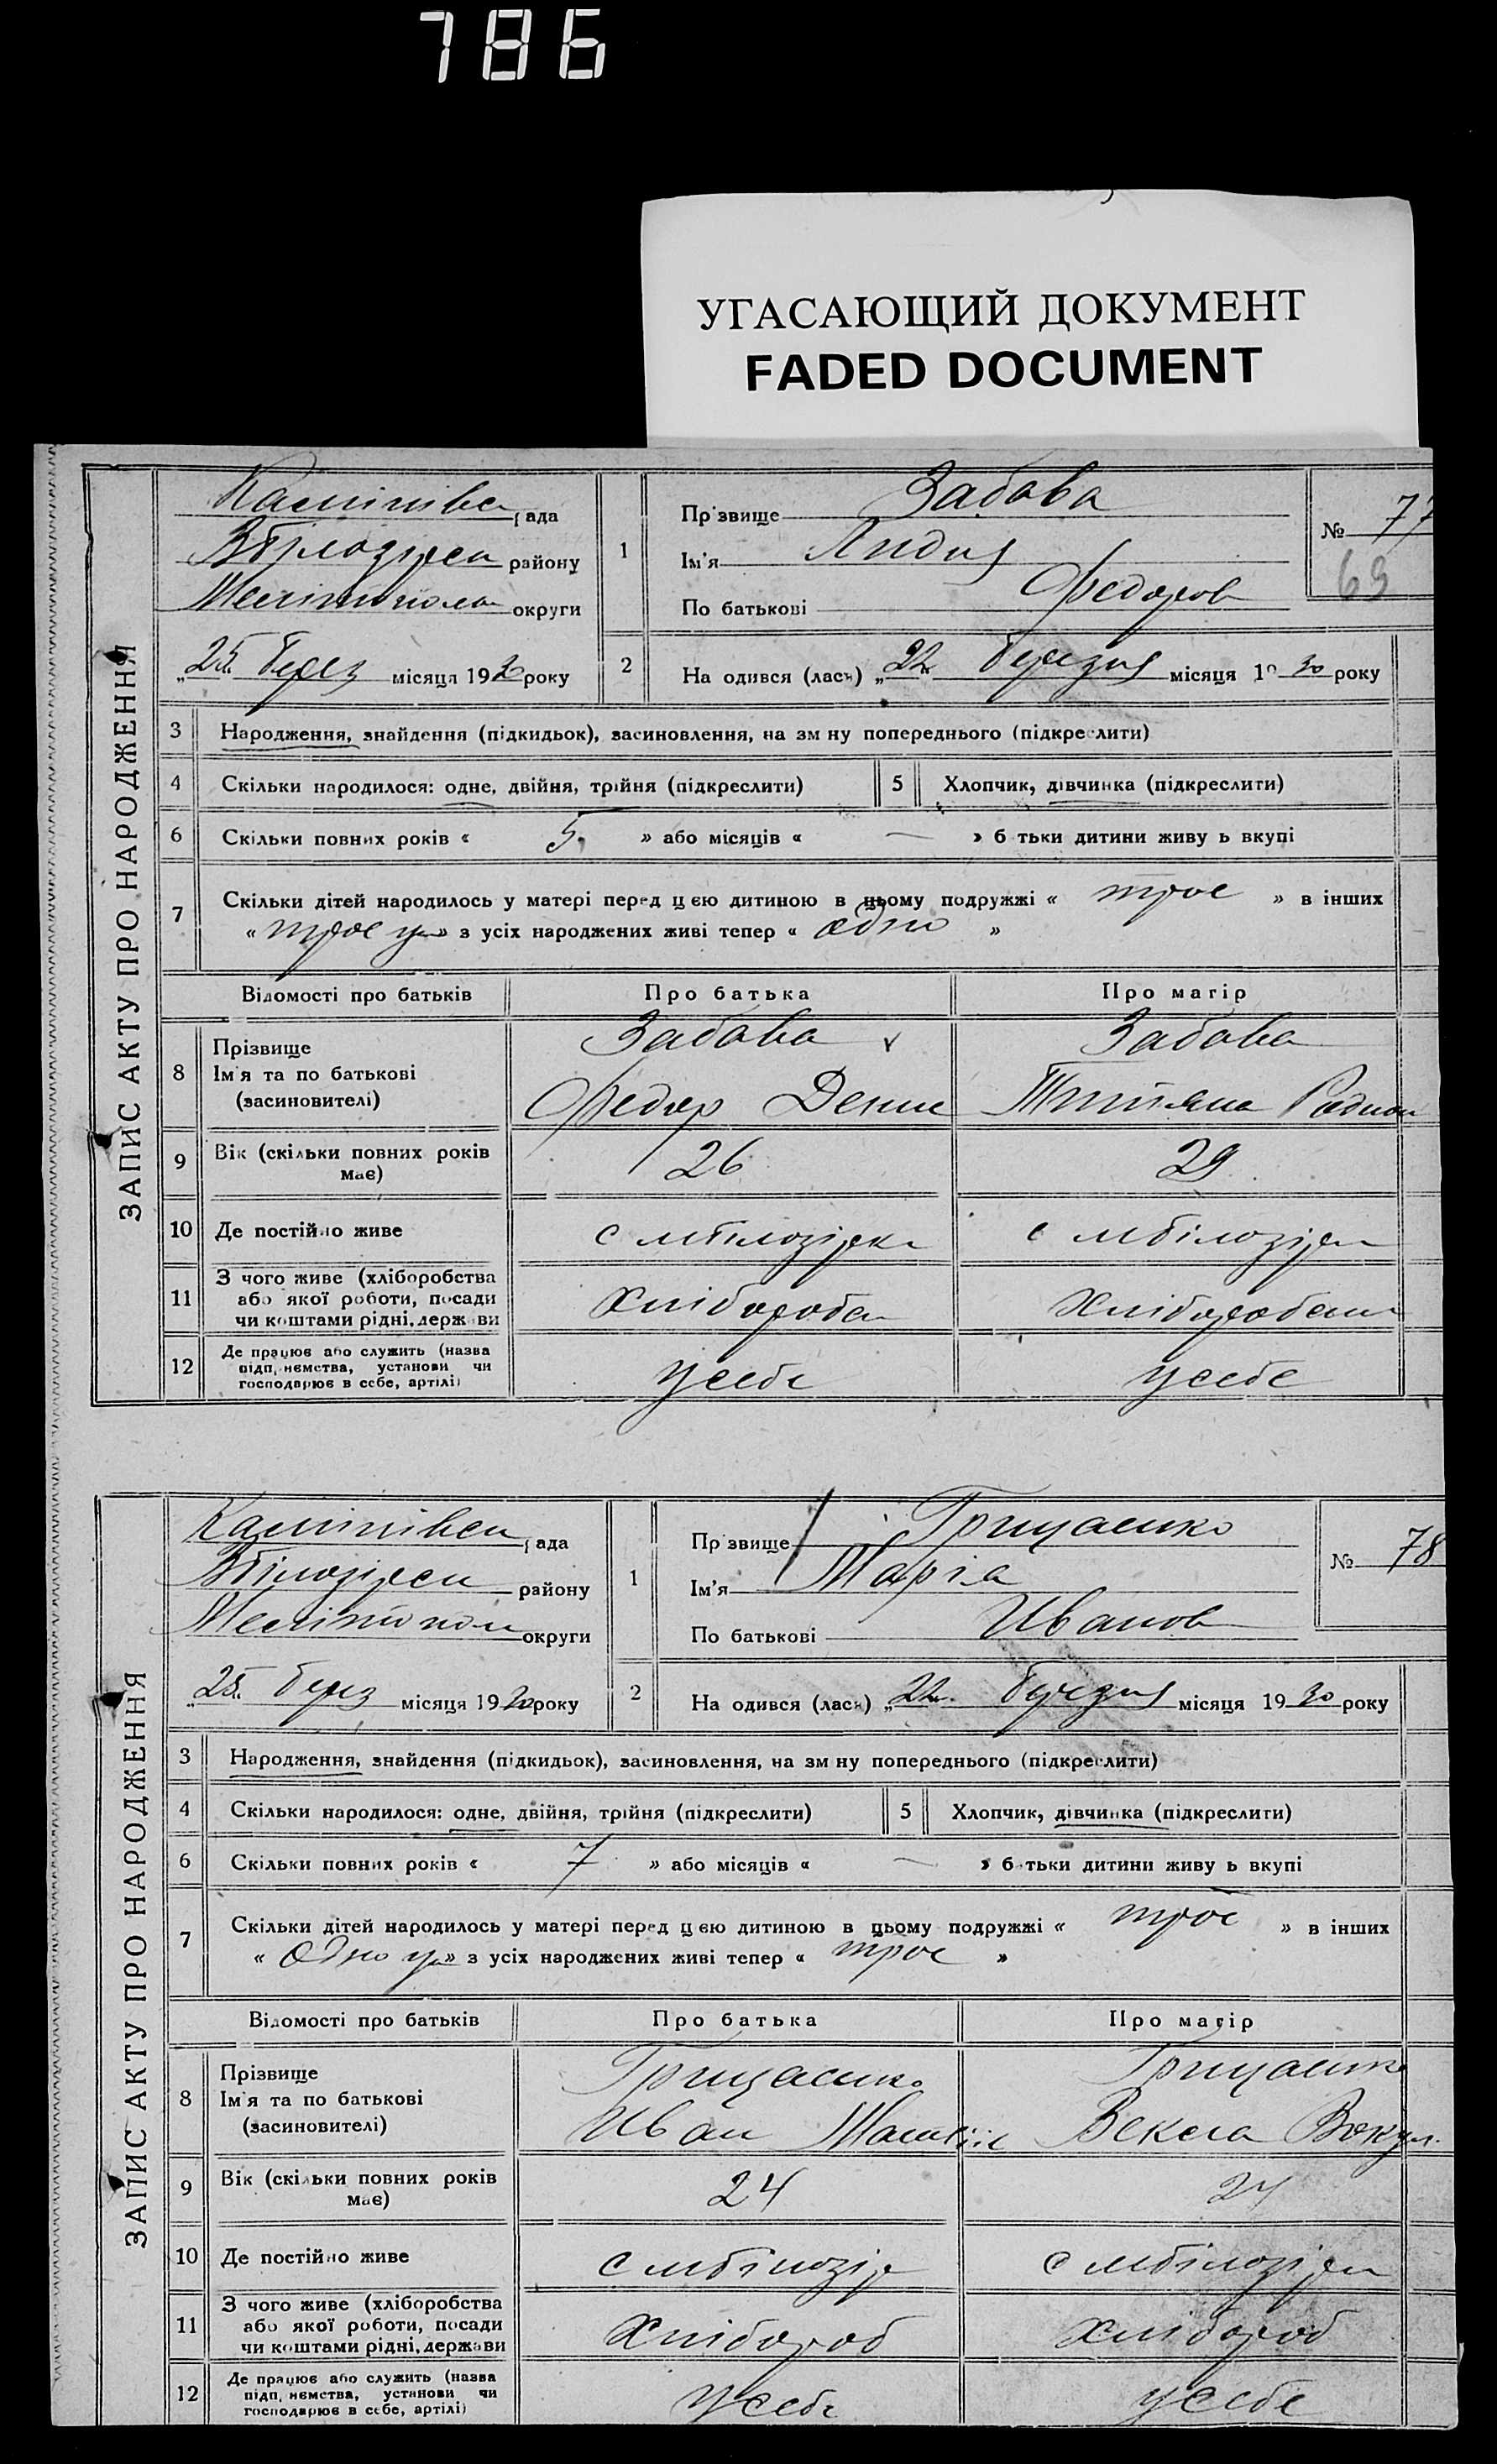 786
УГАСАЮЩИЙ ДОКУМЕНТ
FADED DOCUMENT
ЗАПИС АКТУ ПРО НАРОДЖЕННЯ
рада
району
округи
„25„ берез місяця 1930 року
1
Пр звище Забава
Ім'я Лидия
По батькові Федоров
№ 77
69
2
На одився (лась) „22„ березня місяця 19 30 року
3 Народження, знайдення (підкидьок), засиновлення, на зм ну попереднього (підкреслити)
4 Скільки народилося: одне, двійня, трійня (підкреслити)
5 Хлопчик, дівчинка (підкреслити)
6 Скільки повних років « 5 » або місяців « — » б тьки дитини живу ь вкупі
7 Скільки дітей народилось у матері перед цею дитиною в цьому подружжі « трое » в інших
« трое » з усіх народжених живі тепер « одно »
Відомості про батьків
Про батька
Про матір
8 Прізвище
Ім'я та по батькові
(засиновителі)
Забава
Федор Денис
Забава
Татьяна Радион
9 Вік (скільки повних років
має)
26
29
10 Де постійно живе
с мбілозірка
с мбілозірк
11 З чого живе (хліборобства
або якої роботи, посади
чи коштами рідні, держави
Хлібороб
Хлібороб
12 Де працює або служить (назва
підп, немства, установи чи
господарює в себе, артілі)
у себе
у себе
ЗАПИС АКТУ ПРО НАРОДЖЕННЯ
рада
району
округи
„25„ берез місяця 1930 року
1
Пр звище Грицаенко
Ім'я Марія
По батькові Иванов
№ 78
2
На одився (лась) „22„ березня місяця 19 30 року
3 Народження, знайдення (підкидьок), засиновлення, на зм ну попереднього (підкреслити)
4 Скільки народилося: одне, двійня, трійня (підкреслити)
5 Хлопчик, дівчинка (підкреслити)
6 Скільки повних років « 7 » або місяців « — » б тьки дитини живу ь вкупі
7 Скільки дітей народилось у матері перед цею дитиною в цьому подружжі « трое » в інших
« одно » з усіх народжених живі тепер « трое »
Відомості про батьків
Про батька
Про матір
8 Прізвище
Ім'я та по батькові
(засиновителі)
Грицаенко
Иван
Грицаенко
Векла
9 Вік (скільки повних років
має)
24
24
10 Де постійно живе
с мбілозір
с мбілозірк
11 З чого живе (хліборобства
або якої роботи, посади
чи коштами рідні, держави
Хлібороб
хлібороб
12 Де працює або служить (назва
підп, немства, установи чи
господарює в себе, артілі)
у себе
у себе